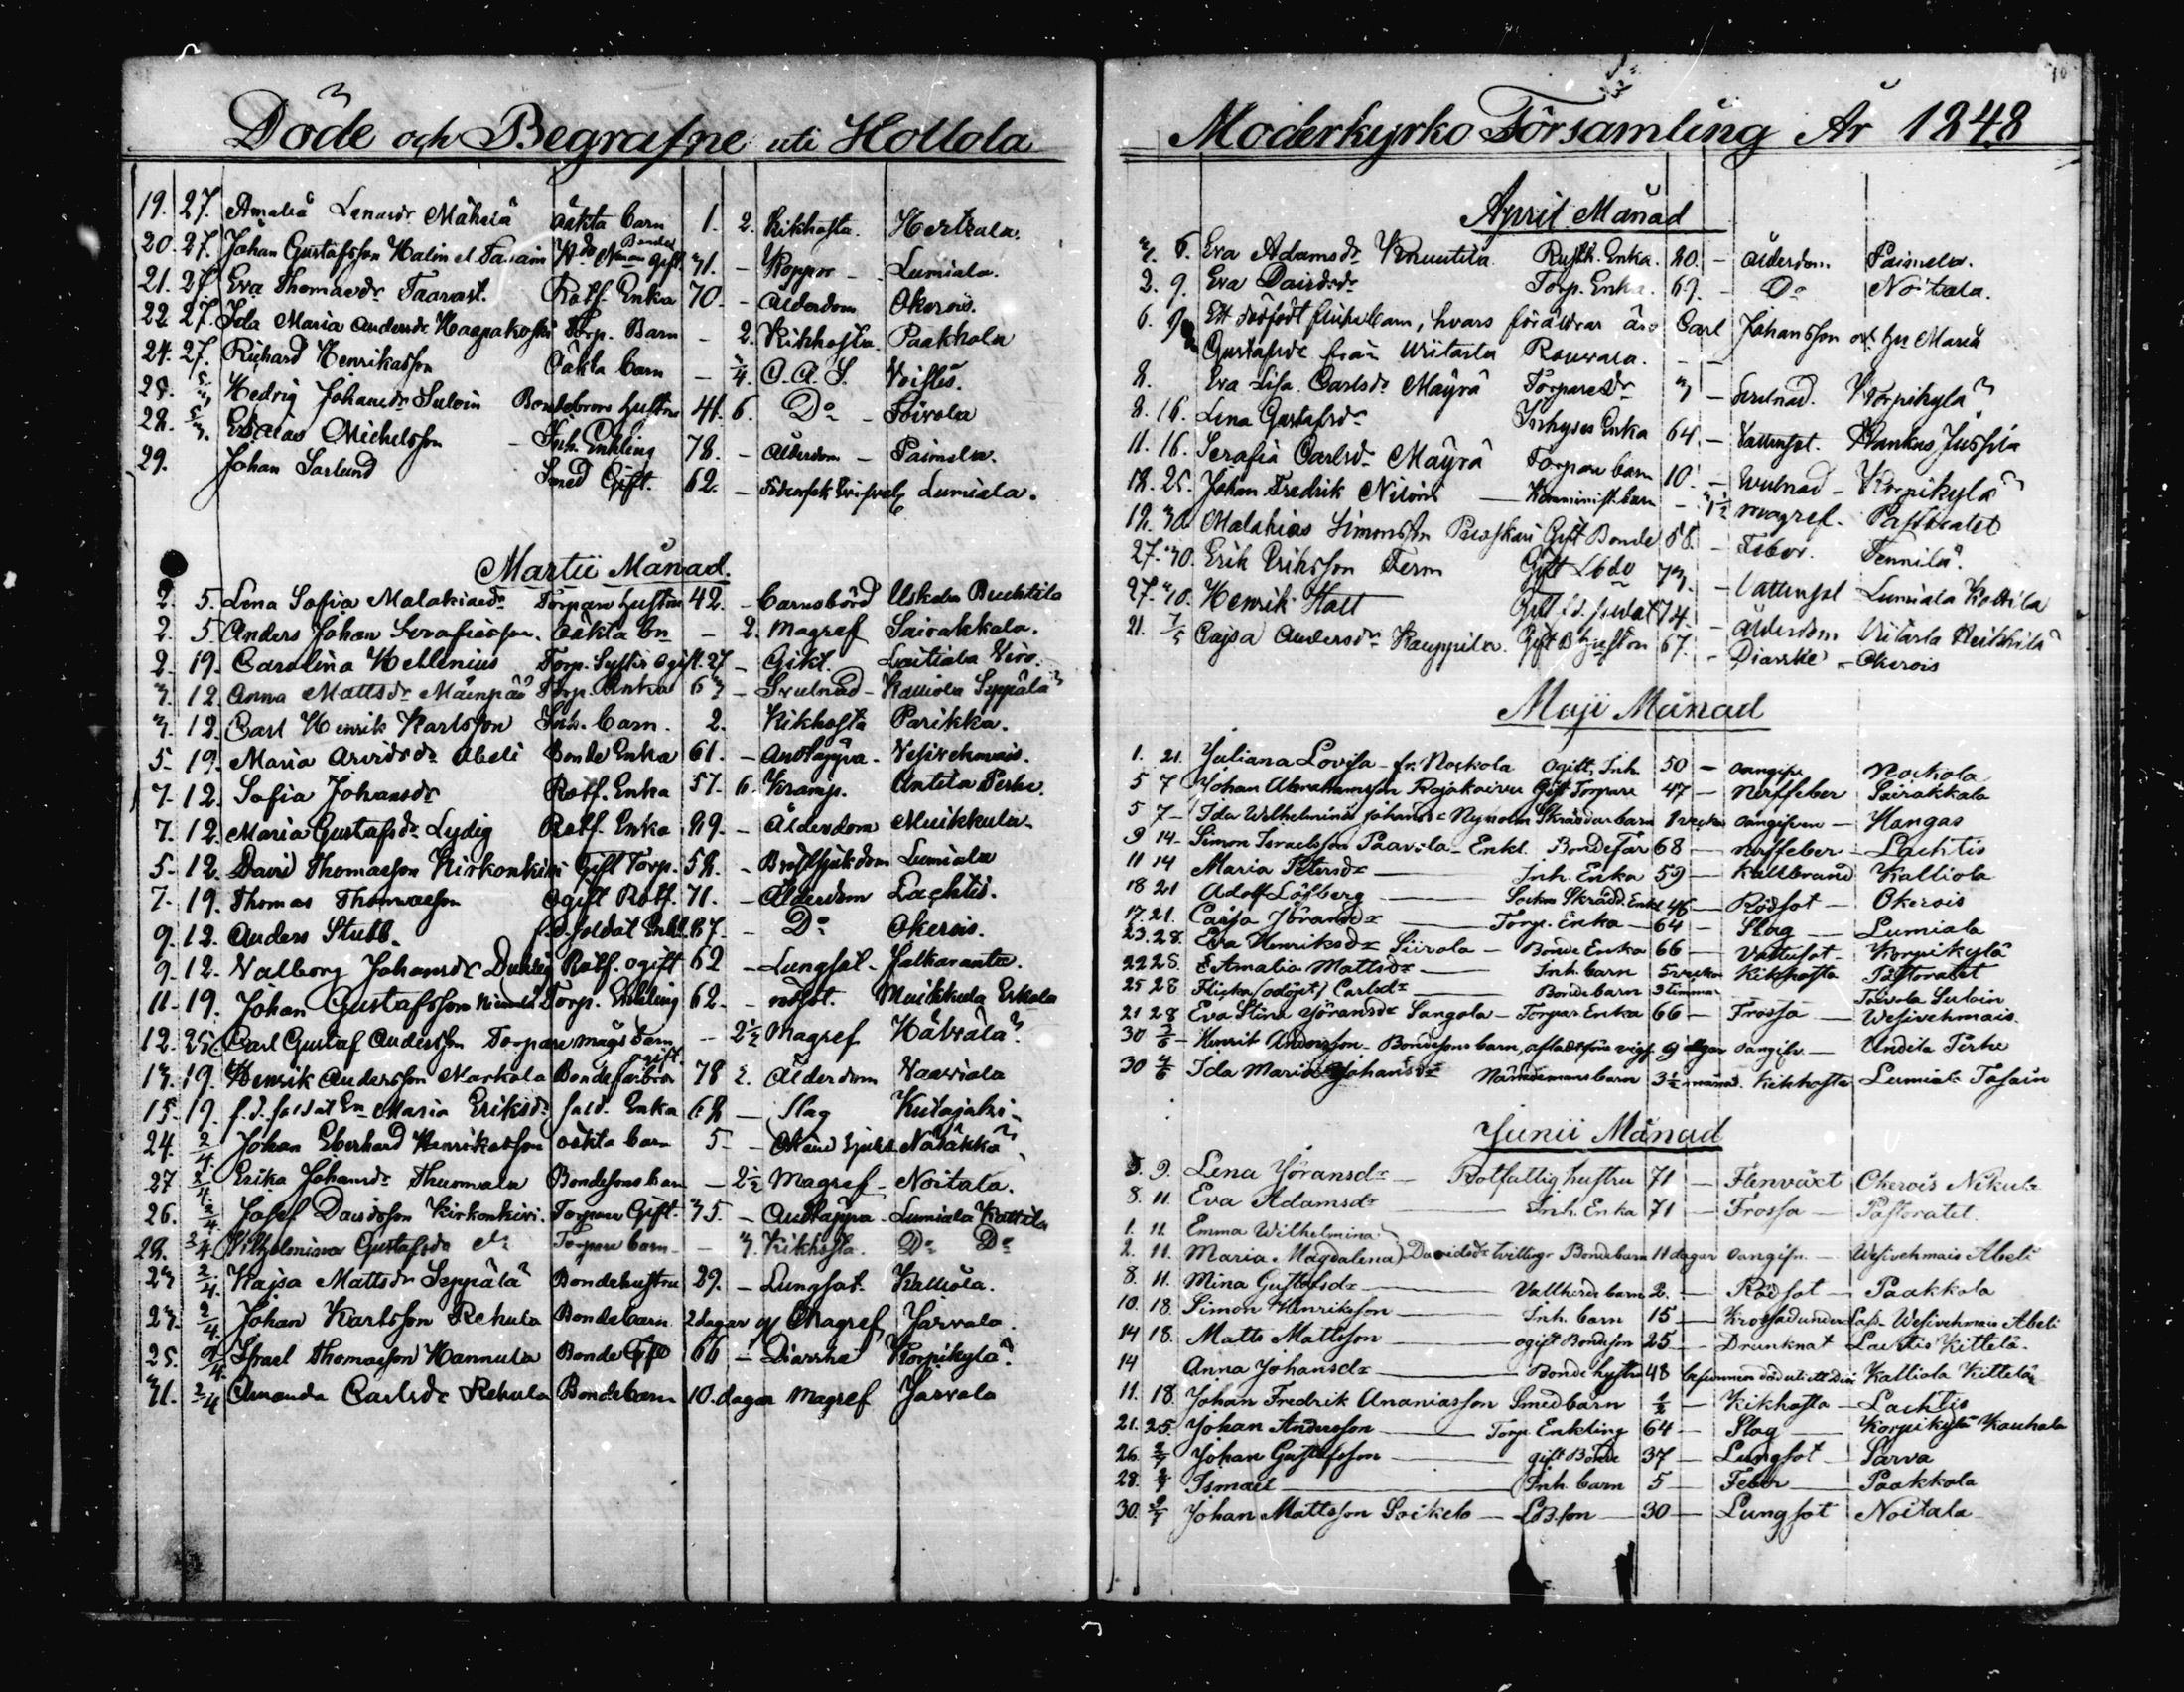 Döde och Begrafne uti Hollola
19. 27. Amalia Lenardr Mähelä äckta barn 1. 2. Kikhosta. Hertzala.
20. 27. Johan Gustafsson Halin Gift 71. - Koppor - Lumiala.
21. 27 Eva Thomasdr Taavast. Rotf. Enka 70. - Ålderdom Okerois.
22 27. Ida Maria Andersdr Haapakoski Torp. Barn - 2. Kikhosta. Paakkola
24. 27. Richard Henriksson Oäkta barn - 3/4. O.A.S. Voistis.
25. 5/3 Hedvig Johansdr Sulvin Bondebrors hustru 41. 6. Do - Toivola
28. 5/3. Michelsson - Inh. Enkling 78. - Ålderdom - Paimela.
29. Johan Sarlund Smed Gift. 62. - Lumiala.
Martii Månad.
2. 5. Lena Sofia Malakiasdr Torpare hustru 42. - Barnsbörd Uskila Puchtila
2. 5. Anders Johan Serafiasson. oäkta bn - 2. Magref Sairakkala.
2. 19. Carolina Hellenius Torp. Syster ogift. 27 - Gikt. Laitiala
3. 12. Anna Mattsdr Mäenpää Torp. Enka 63 - Svulnad - Kalliola Seppälä
3. 12. Carl Henrik Karlsson Inh. barn. 2. Kikhosta Parikka.
5. 19. Maria Arvidsdr Abeli Bonde Enka 61. - Andtäppa - Vesivehmais.
7. 12. Sofia Johansdr Rotf. Enka 57. 6. Kramp. Untila Perhe.
7. 12. Maria Gustafsdr Lydig Rotf. Enka 89. - Ålderdom Muikkula.
5. 12. David Thomasson Kirkonkivi Gift Torp. 58. - Bröstsjukdom Lumiala
7. 19. Thomas Thomasson Ogift Rotf. 71. - Ålderdom Lachtis.
9. 12. Anders Stubb. f.d. soldat Enkl. 87. - Do Okerois.
9. 12. Valborg Johansdr Rotf. ogift 62 - Lungsot. Jalkaranta.
11. 19. Johan Gustafsson Torp. Enkling 62. - rödsot. Muikkula Erkola
12. 25 Carl Gustaf Andersson Torpare mågs barn - 2½ Magref Hälvälä
13. 19. Henrik Andersson Markola Bonde farbror ogift 78 2. Ålderdom Vaaviala
15. 19. f.d. soldat En. Maria Eriksdr sold. Enka 68 - Slag Kutajaki
24. 2/4 Johan Eberhard Henriksson oäkta barn 5. - Okänd sjukd Näläkkä
27 2/4 Erika Johansdr Thuomala Bondesons barn - 2½ Magref - Noitala.
26. 2/4 Josef Davidsson Kirkonkivi. Torpare Gift. 75. - Andtäppa. Lumiala Kattila
28. 2/4 Wilhelmina Gustafsdr Torpare barn - 3. Kikhosta. Do Do
23 2/4. Kajsa Mattsdr Seppälä Bondehustru 29. - Lungsot. Kalliola.
23. 2/4. Johan Karlsson Rekula Bondebarn 2 dagar g Magref Jarvala.
25. 2/4. Israel Thomasson Hannula Bonde Gift 66 - Diarrhé Korpikylä.
31. 2/4 Amanda Carlsdr Rekula Bondebarn 10. dagar Magref Jarvala
Moderkyrko Församling År 1848
10
April Månad
3. 6. Eva Adamsdr Knuutila Rusth. Enka. 80. - Ålderdom Paimela.
2. 9. Eva Davidsdr Torp. Enka. 69. - Do Noitala.
6. 9 Ett dödfödt flickebarn, hvars föräldrar äro Carl Johansson och Maria
Gustafsdr från Uitarla Rouvala. - -
8. Eva Lisa Carlsdr Mäyrä Torparedr 3 - Svulnad. Korpikylä
8. 16. Lena Gustafsdr Inhyses Enka 64. - Vattusot. Hankas Jussila
11. 16. Serafia Carlsdr Mäyrä Torpare barn 10. - Svulnad - Korpikylä
18. 25. Johan Fredrik - Komminist. barn - 1½ Magref. Pastoratet
12. 30. Malakias Simonsson Gift Bonde 58. - Feber. Tennilä.
27. 30. Erik Eriksson Ferm Gift 73. - Vattusot Lumiala Kattila
27. 30. Henrik Halt Gift f.d. soldat 74. - Ålderdom Uitarla Heikkilä
21. 7/5 Cajsa Andersdr Kauppila. Gift B. hustru 67. - Diarrhé - Okerois
Maji Månad
1. 21. Juliana Lovisa - fr. Nockola ogift, Inh. 50 - oangifv. Nockola
5 7 Johan Abrahamsson Rajakaivu Gift Torpare 47 - Nerffeber Sairakkala
5 7 - Ida Wilhelmina Johansdr Nyholm Skräddarbarn 1 vecka oangifven - Hangas
9 14 - Simon Israelsson Paavola - Enkl. Bondefar 68 - nerffeber - Lachtis
11 14 Maria Petersdr - Inh. Enka 59 - kallbrand Kalliola
18 21 Adolf Löfberg - Socken Skrädd. Enkl 46 - Rödsot - Okerois
17. 21. Caisa Jöransdr - Torp. Enka - 64 - Slag - Lumiala
23. 28. Eva Henriksdr Siivola - Bonde Enka 66 - Vattusot - Korpikylä
22 28. E. Amalia Mattsdr - Inh. barn 5 veckor Kikhosta Pastoratet
25 28 Flicka (odöpt) Carlsdr - Bondebarn 3 timmar Toivola Sulvin
21 28 Eva Stina Jöransdr Sangola - Torpar Enka 66 - Frossa - Wesivehmais.
30 2/6 - Henrik Andersson - Bondesons barn, 9 dagar oangifv. - Undila Terhe
30 4/6 Ida Maria Johansdr Nämndemans barn 3½ månad. Kikhosta Lumiala Tasain
Junii Månad
5. 9. Lena Jöransdr - Rotfattig hustru 71 - Flenväxt Okerois Nikula
8. 11. Eva Adamsdr - Inh. Enka 71 - Frossa - Pastoratet.
1. 11. Emma Wilhelmina
2. 11. Maria Magdalena Davidsdr tvillingr Bondebarn 11 dagar oangifn. - Wesivehmais Abeli
8. 11. Mina Gustafsdr - Vallherde barn 2. - Rödsot - Paakkola
10. 18. Simon Henriksson - Inh. barn 15 - Krossad under Lass - Wesivehmais Abeli
14 18. Matts Mattsson - ogift Bondeson 25 - Drunknat Lachtis Kittelä.
14 Anna Johansdr - Bonde hustru 48 Kalliola Kittelä
11. 18. Johan Fredrik Ananiasson Smedbarn ½ - Kikhosta - Lachtis
21. 25. Johan Andersson - Torp. Enkling 64 - Slag - Korpikylä Kauhala
26. 2/7 Johan Gustafsson - gift Bonde 37 - Lungsot - Sarva
28. 2/7 Ismael - Inh. barn 5 - Feber - Paakkola
30. 2/7 Johan Mattsson Soikelo - LBson - 30 - Lungsot Noitala